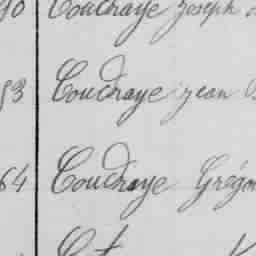 Coudraye Joseph
53 Coudraye jean
64 Coudraye Grégo